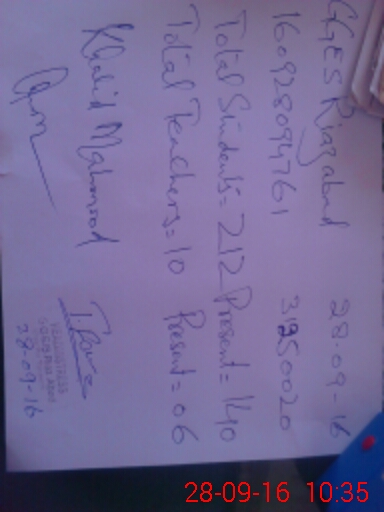 GGES Riazabad 28-09-16
160928094761 31250020
Total Students = 212 Present = 140
Total Teachers = 10 Present = 06
Khalid Mahmood
28-09-16
28-09-16 10:35